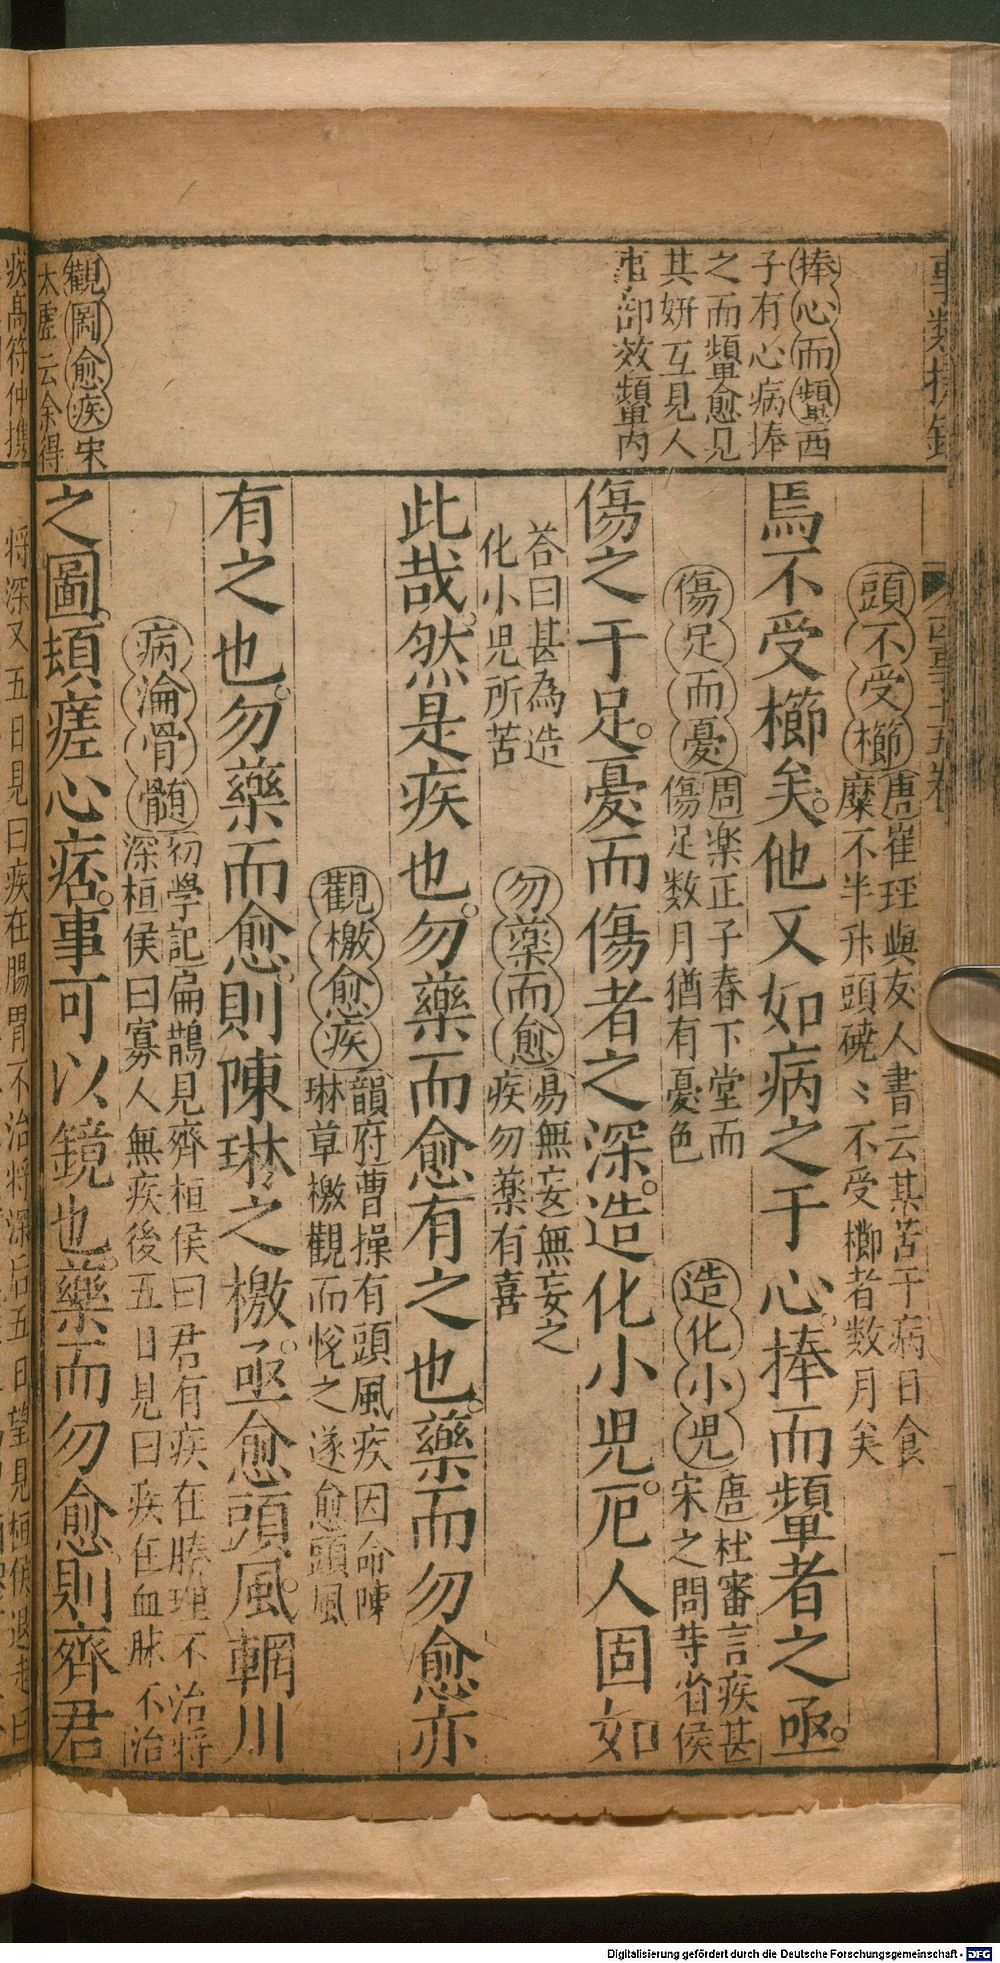 捧心而顰西
子有心病捧
之而顰愈見
其妍互見人
事部效顰內
觀圖愈疾宋
太虛云余得
頭不受櫛唐崔珏與友人書云某苦于病日食
糜不半升頭磽〻不受櫛者数月矣
焉不受櫛矣他又如病之于心捧而顰者之亟
傷足而憂周楽正子春下堂而
傷足数月猶有憂色
造化小児唐杜審言疾甚
宋之問等省侯
傷之于足憂而傷者之深造化小児厄人固如
荅曰甚為造
化小児所苦
勿藥而愈易無妄無妄之
疾勿薬有喜
此哉然是疾也勿藥而愈有之也藥而勿愈亦
觀檄愈疾韻府曹操有頭風疾因命陳
琳草檄觀而恱之遂愈頭風
有之也勿藥而愈則陳琳之檄亟愈頭風輞川
病淪骨髓初學記扁鵲見齊桓侯曰君有疾在腠理不治將
深桓侯曰寡人無疾後五日見曰疾在血脉不治
之圖頓瘥心痞事可以鏡也藥而勿愈則齊君
疾高符仲攜
将深又五日見曰疾在腸胃不治将深后五日望見桓侯退走曰
Digitalisierung gefördert durch die Deutsche Forschungsgemeinschaft - DFG